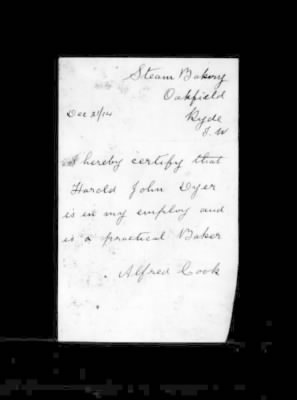 Steam Bakery
Oakfield
Dec 21/14 Ryde
I. W
I hereby certify that
Harold John Dyer
is in my employ and
is a practical Baker
Alfred Cook